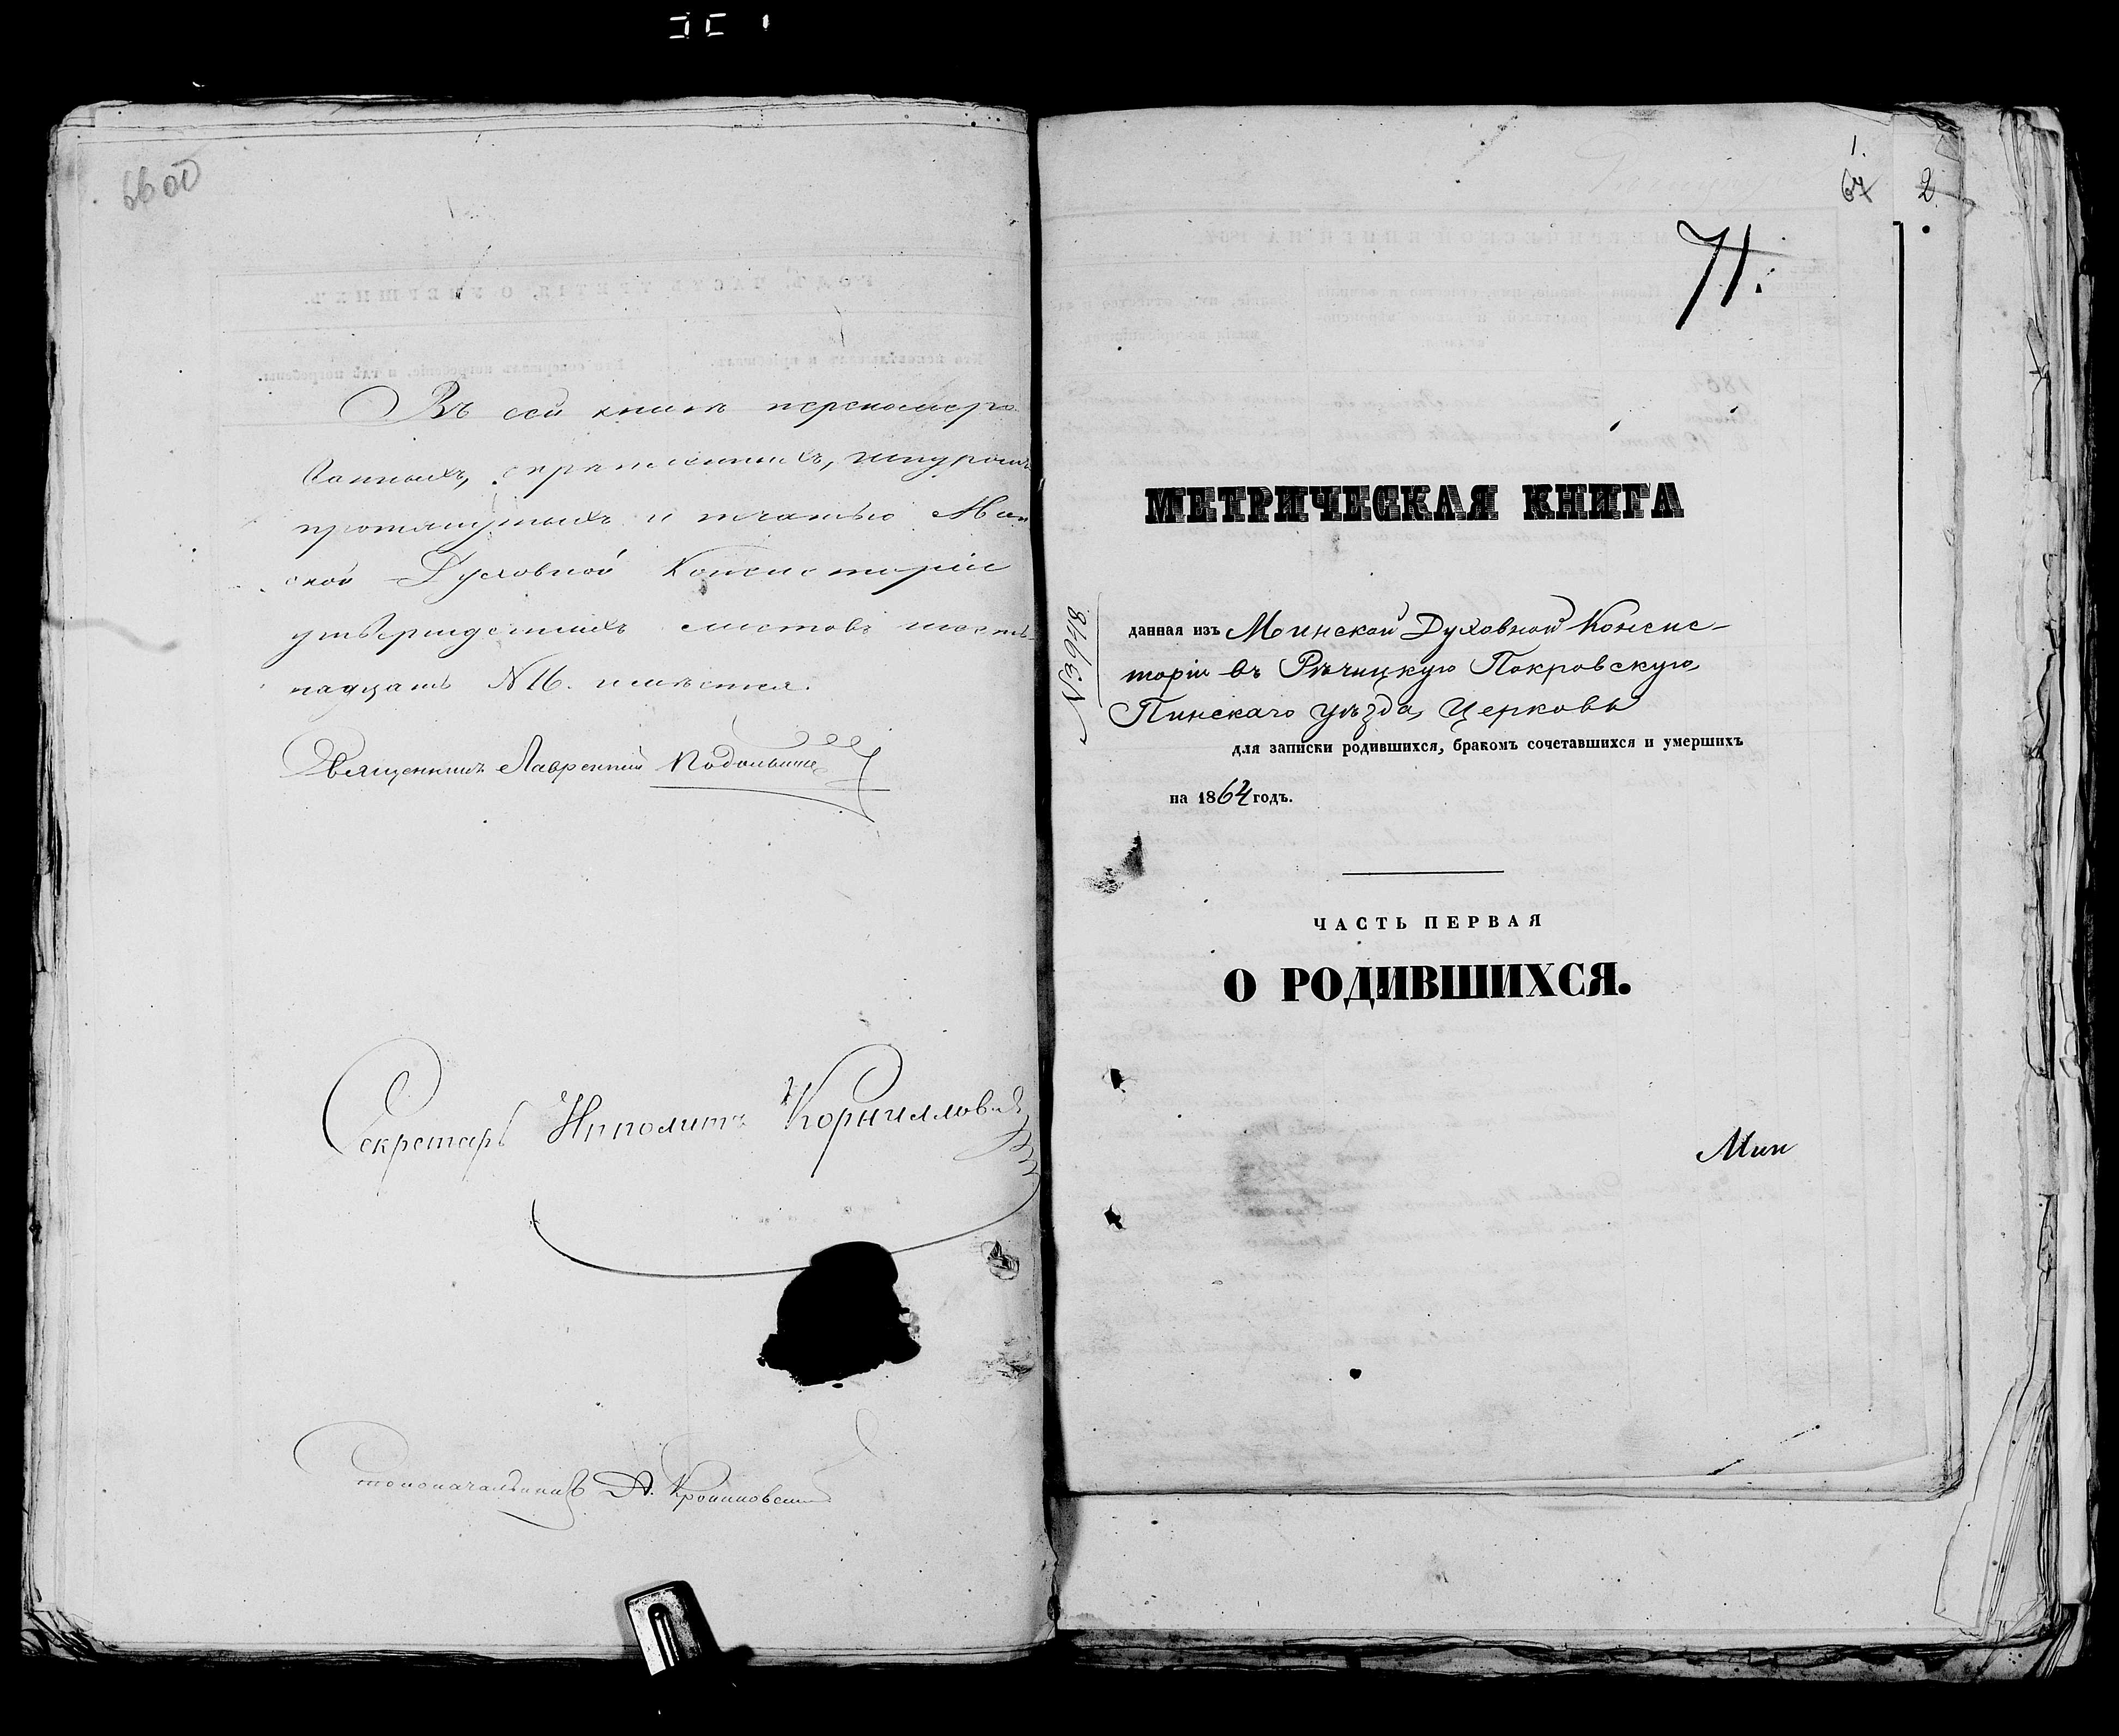 66 об
Въ сей книгѣ перенумеро-
ванныхъ, скрѣпленныхъ, шнуромъ
протянутыхъ и печатью Мин
ской Духовной Консисторіи
утвержденныхъ листовъ шест-
надцать N 16. имѣется.
Священникъ Лаврентій
Секретарь Ипполитъ Корниллович
Столоначальникъ
1.
67
2
71.
МЕТРИЧЕСКАЯ КНИГА
N 3948
данная изъ Минской Духовной Консис-
торіи въ Рѣчицкую Покровскую,
Пинскаго уѣзда, Церковь
для записки родившихся, бракомъ сочетавшихся и умершихъ
на 1864 годъ.
ЧАСТЬ ПЕРВАЯ
О РОДИВШИХСЯ.
Мин